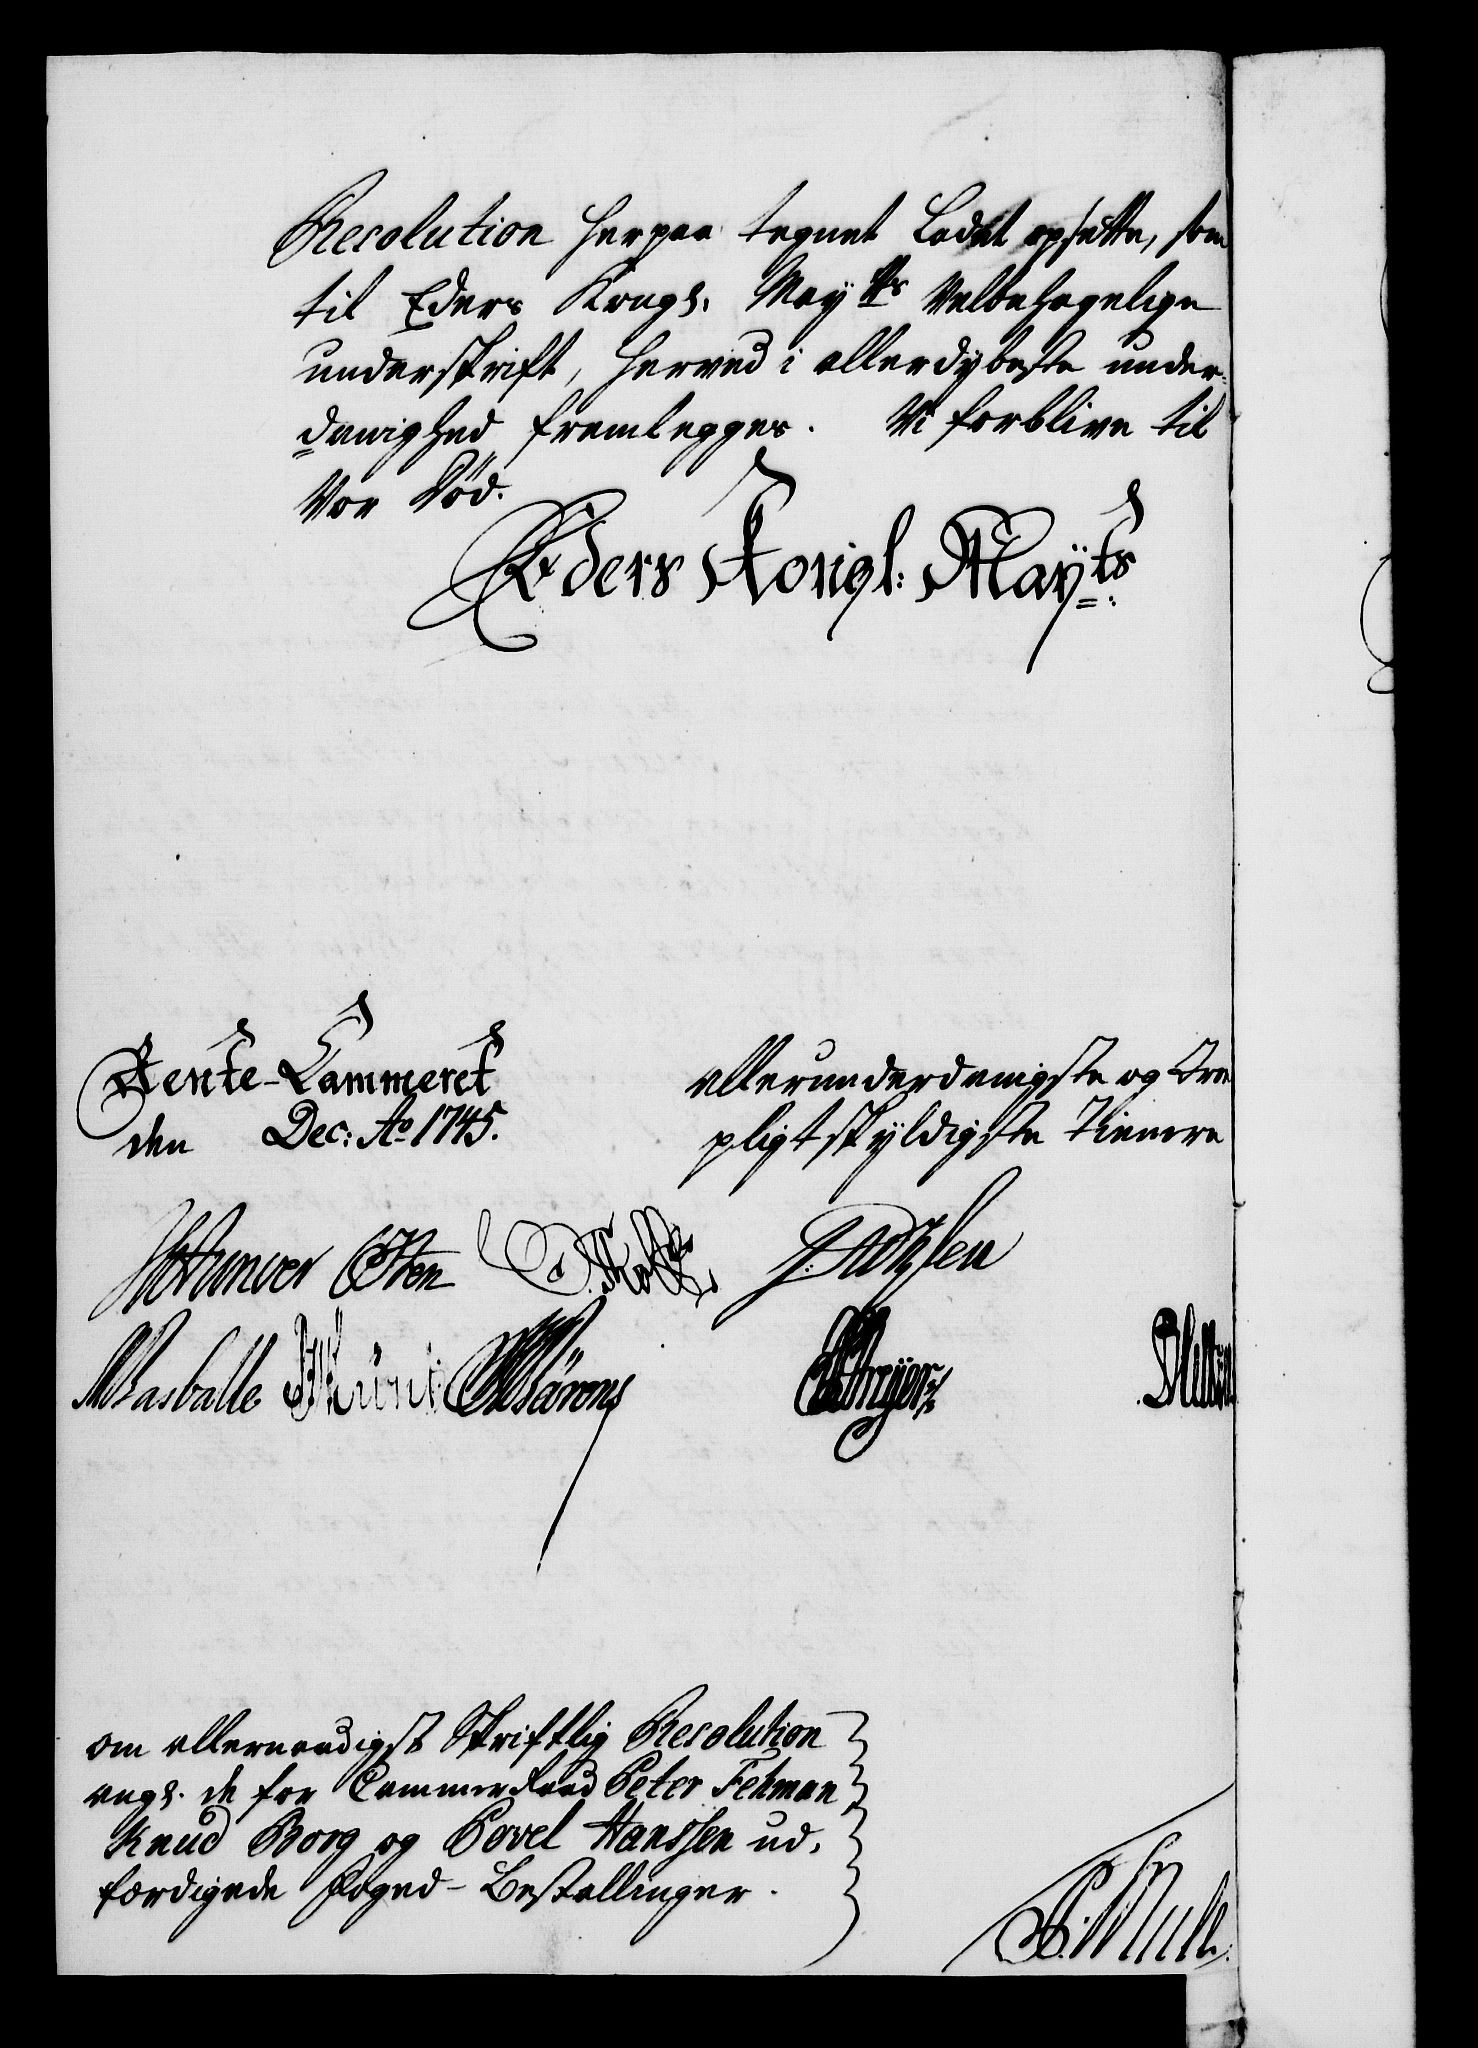 Resolution herpaa tegnet ladet opsette, som
til Eders Kongl. Mayts Velbehagelige
underskrift, herved i allerdybeste under-
danighed fremlegges. Vi forblive til
Vor Død.
Eders Konigl: Mayts:
Rente-Cammeret
den Dec: Ao 1745.
allerunderdanigste og Troe
pligtskyldigste Tienere
Basballe
om allernaadigst Skriftlig Resolution
angl. de for CammerRaad Peter Fehman
Knud Borg og Povel Hanssen ud-
færdigede Foged-Bestallinger.